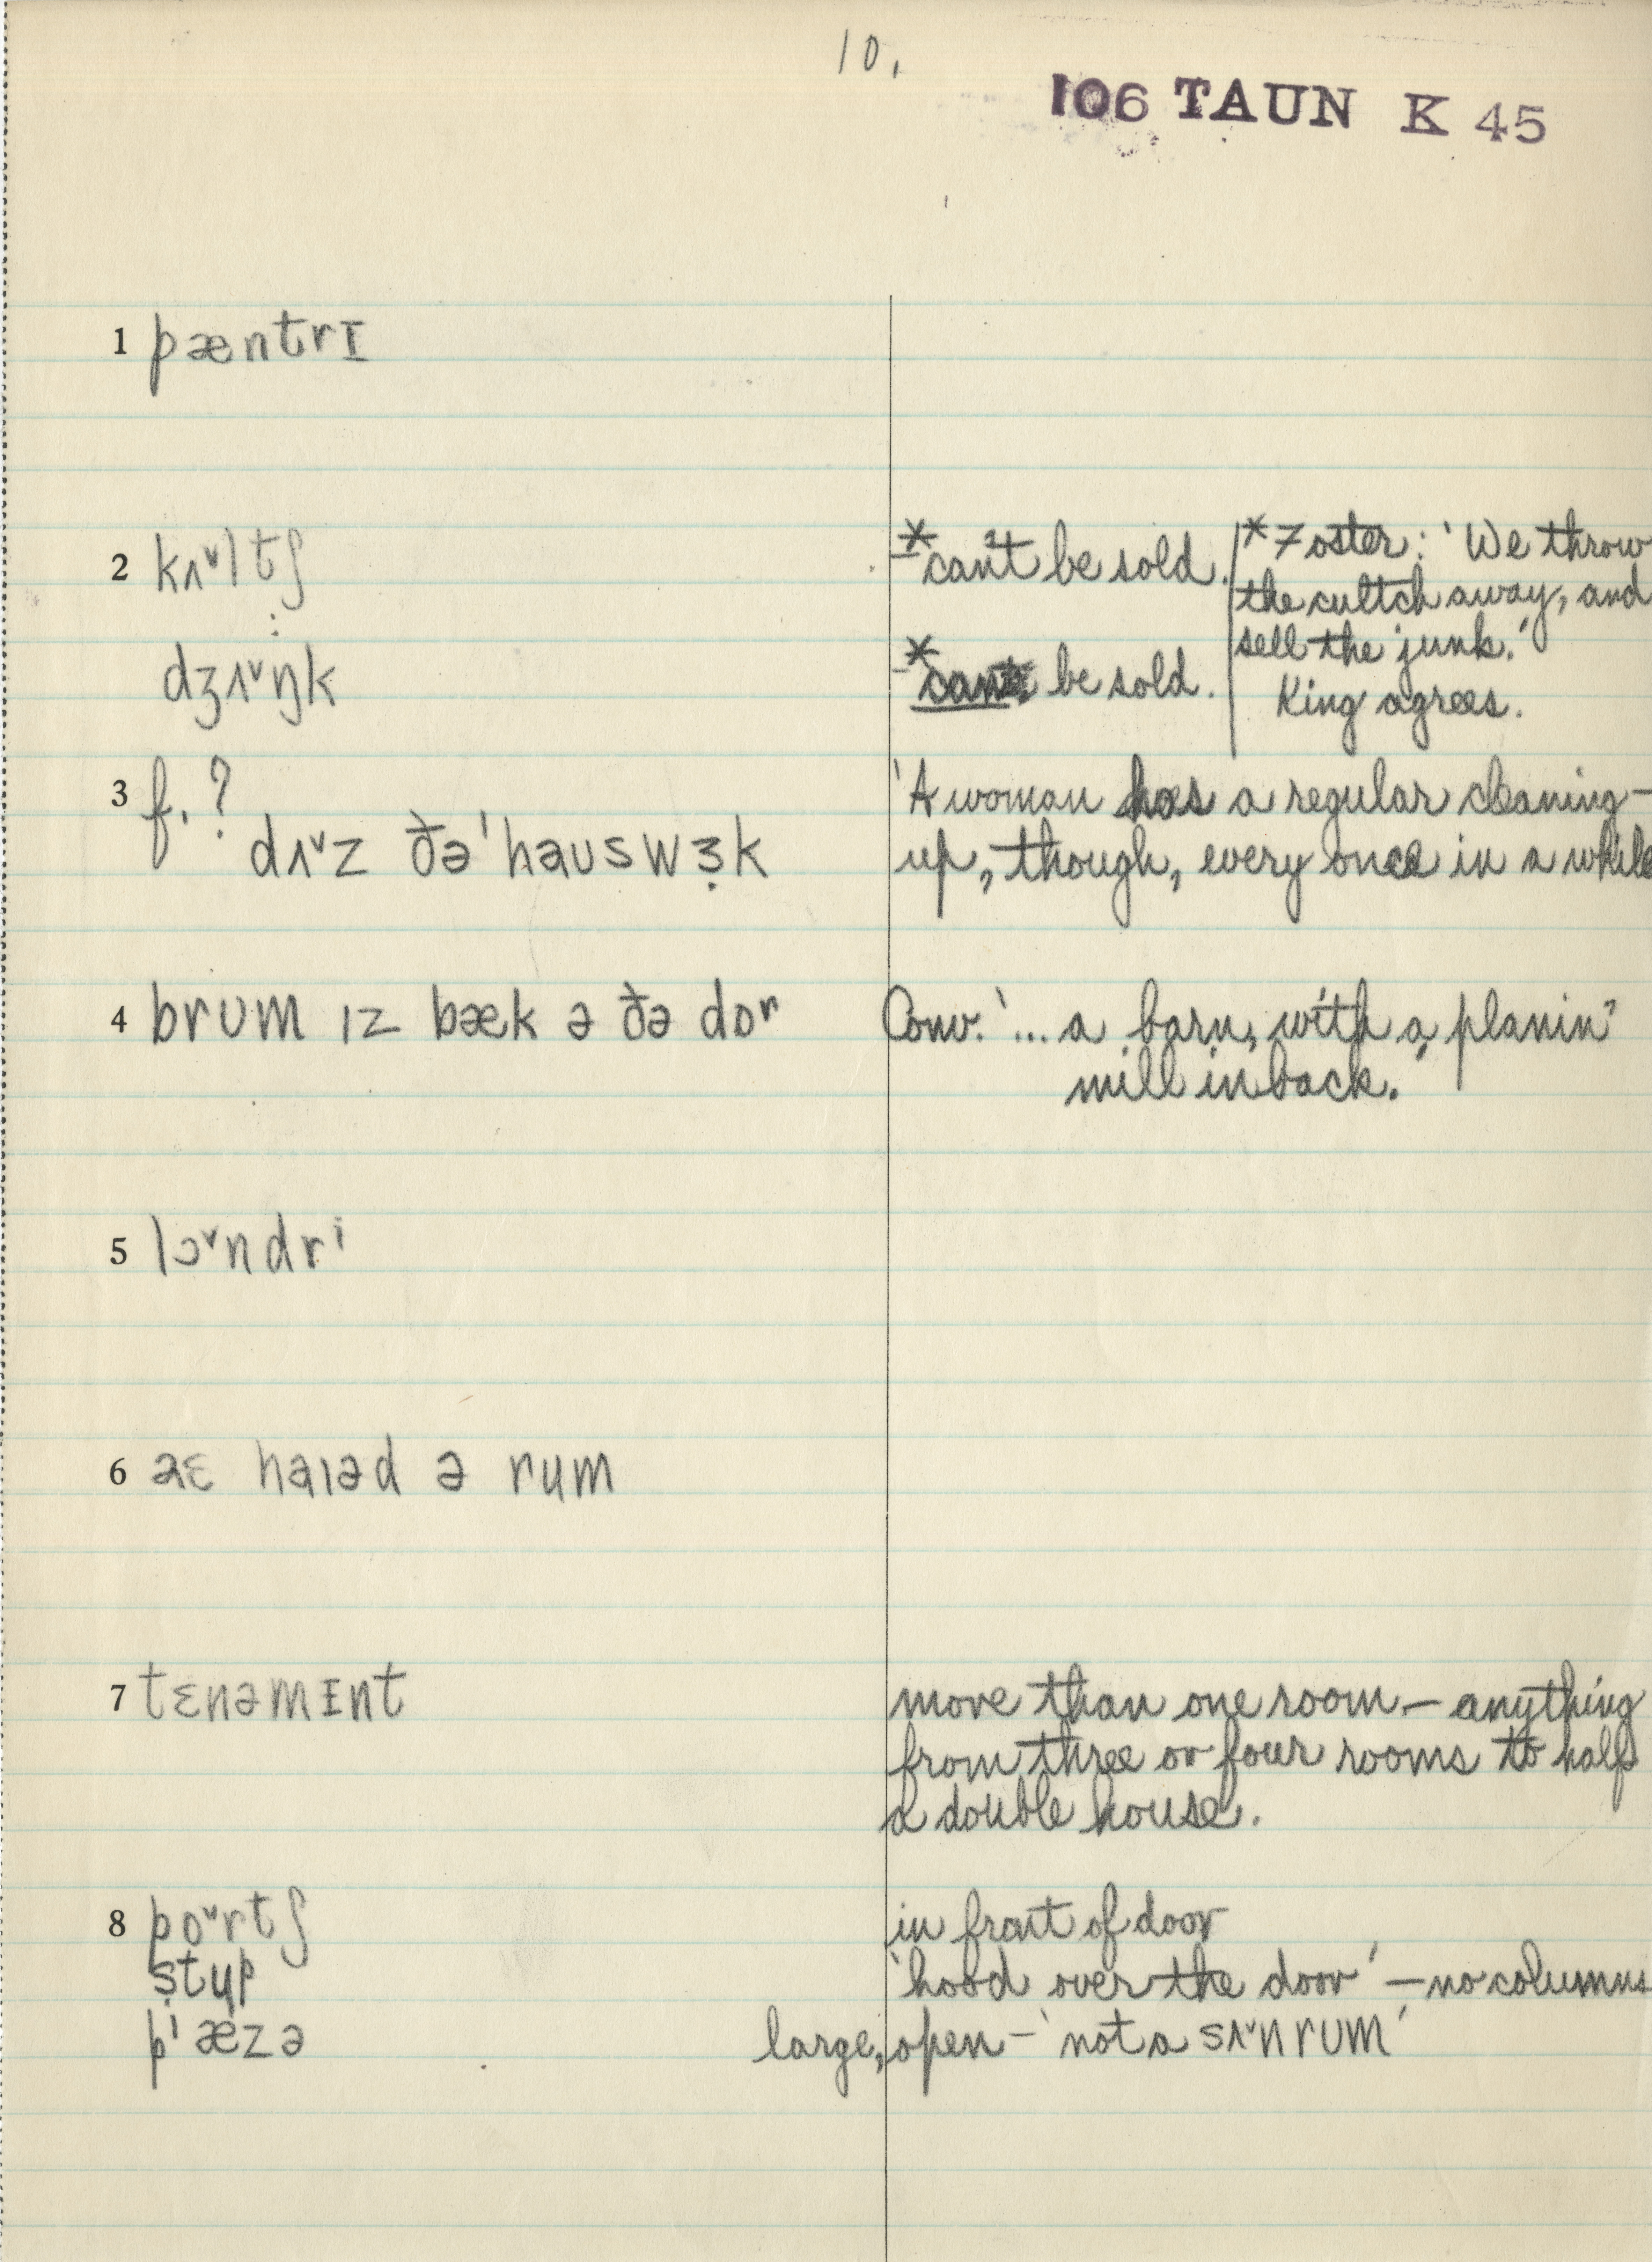 10.
106 TAUN K 45
1 pæntrɪ
2 kʌ˅ltʃ
*can't be sold.
*Foster: 'We throw
the cultch away, and
sell the junk.'
King agrees.
dʒʌ˅ŋk
*can be sold.
3 f. ?
dʌ˅z ðə ˈhauswɜ̣k
'A woman has a regular cleaning-
up, though, every once in a while
4 brʊm ɪz bæk ə ðə dɒʳ
Conv. '... a barn, with a planin'
mill in back.'
5 lɔ˅ndrⁱ
6 aɛ haɪəd ə rum
7 tɛnəmɪnt
more than one room — anything
from three or four rooms to half
a double house.
8 po˅rtʃ
in front of door
stup
'hood over the door' — no columns
pⁱæzə
large, open — 'not a sʌ˅n rʊm'